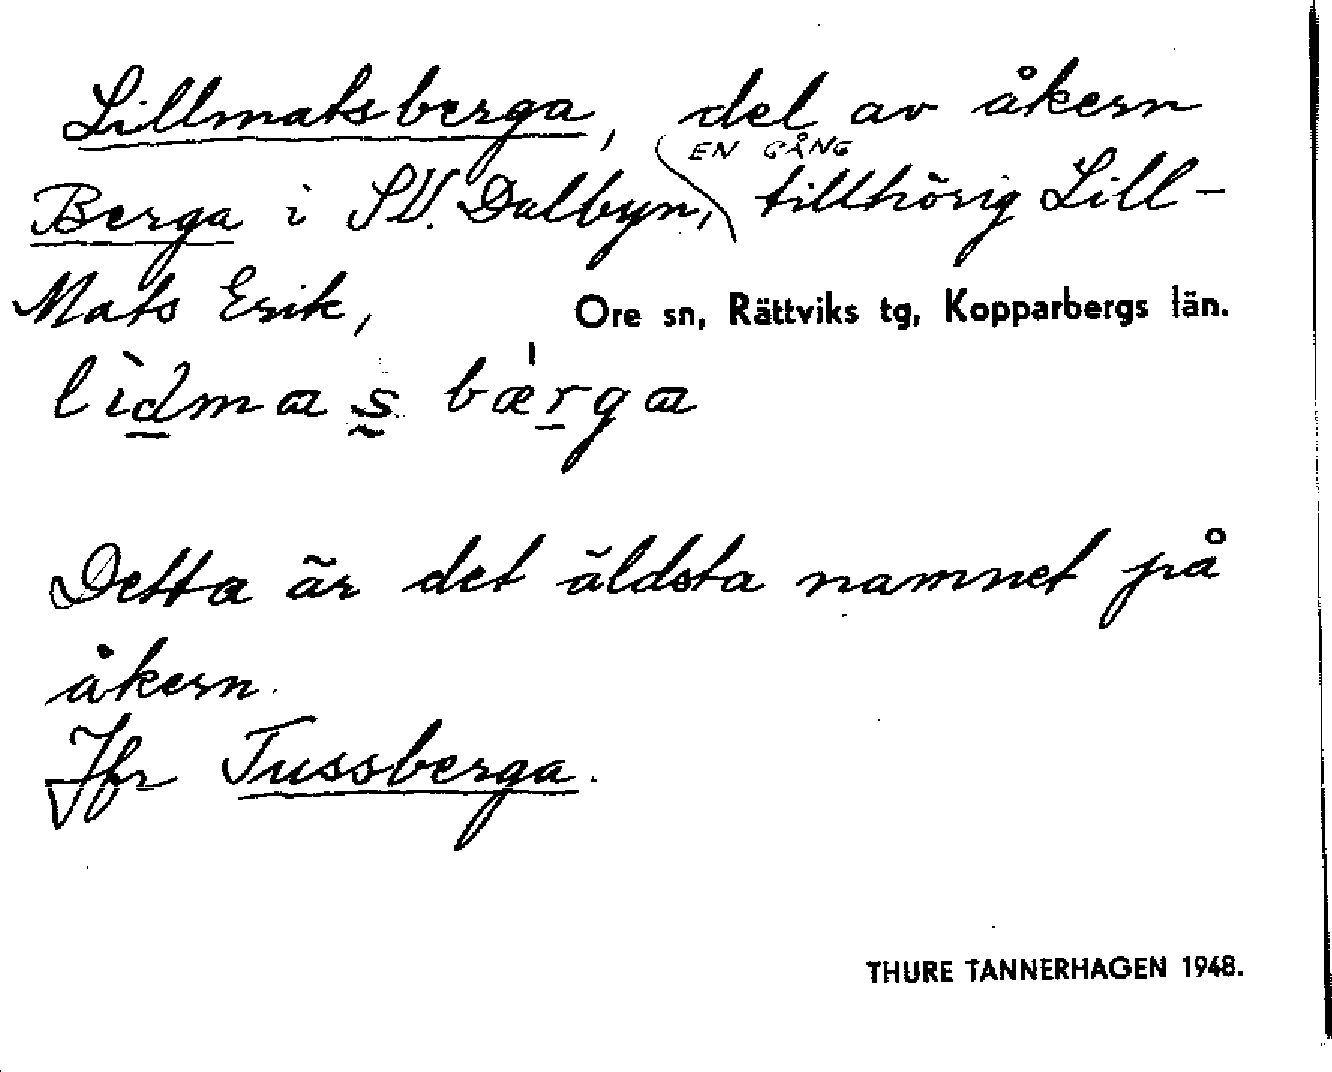 Lillmatsberga, del av åkern
Berga i SV. Dalbyn, EN GÅNG tillhörig Lill-
Mats Erik,
Ore sn, Rättviks tg, Kopparbergs län.
lìdmas bærga
Detta är det äldsta namnet på
åkern.
Jfr Tussberga.
THURE TANNERHAGEN 1948.